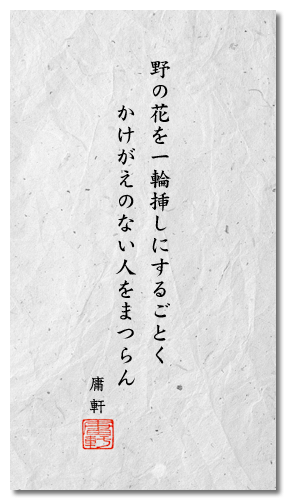 野の花を一輪挿しにするごとく
かけがえのない人をまつらん
庸軒
庸軒